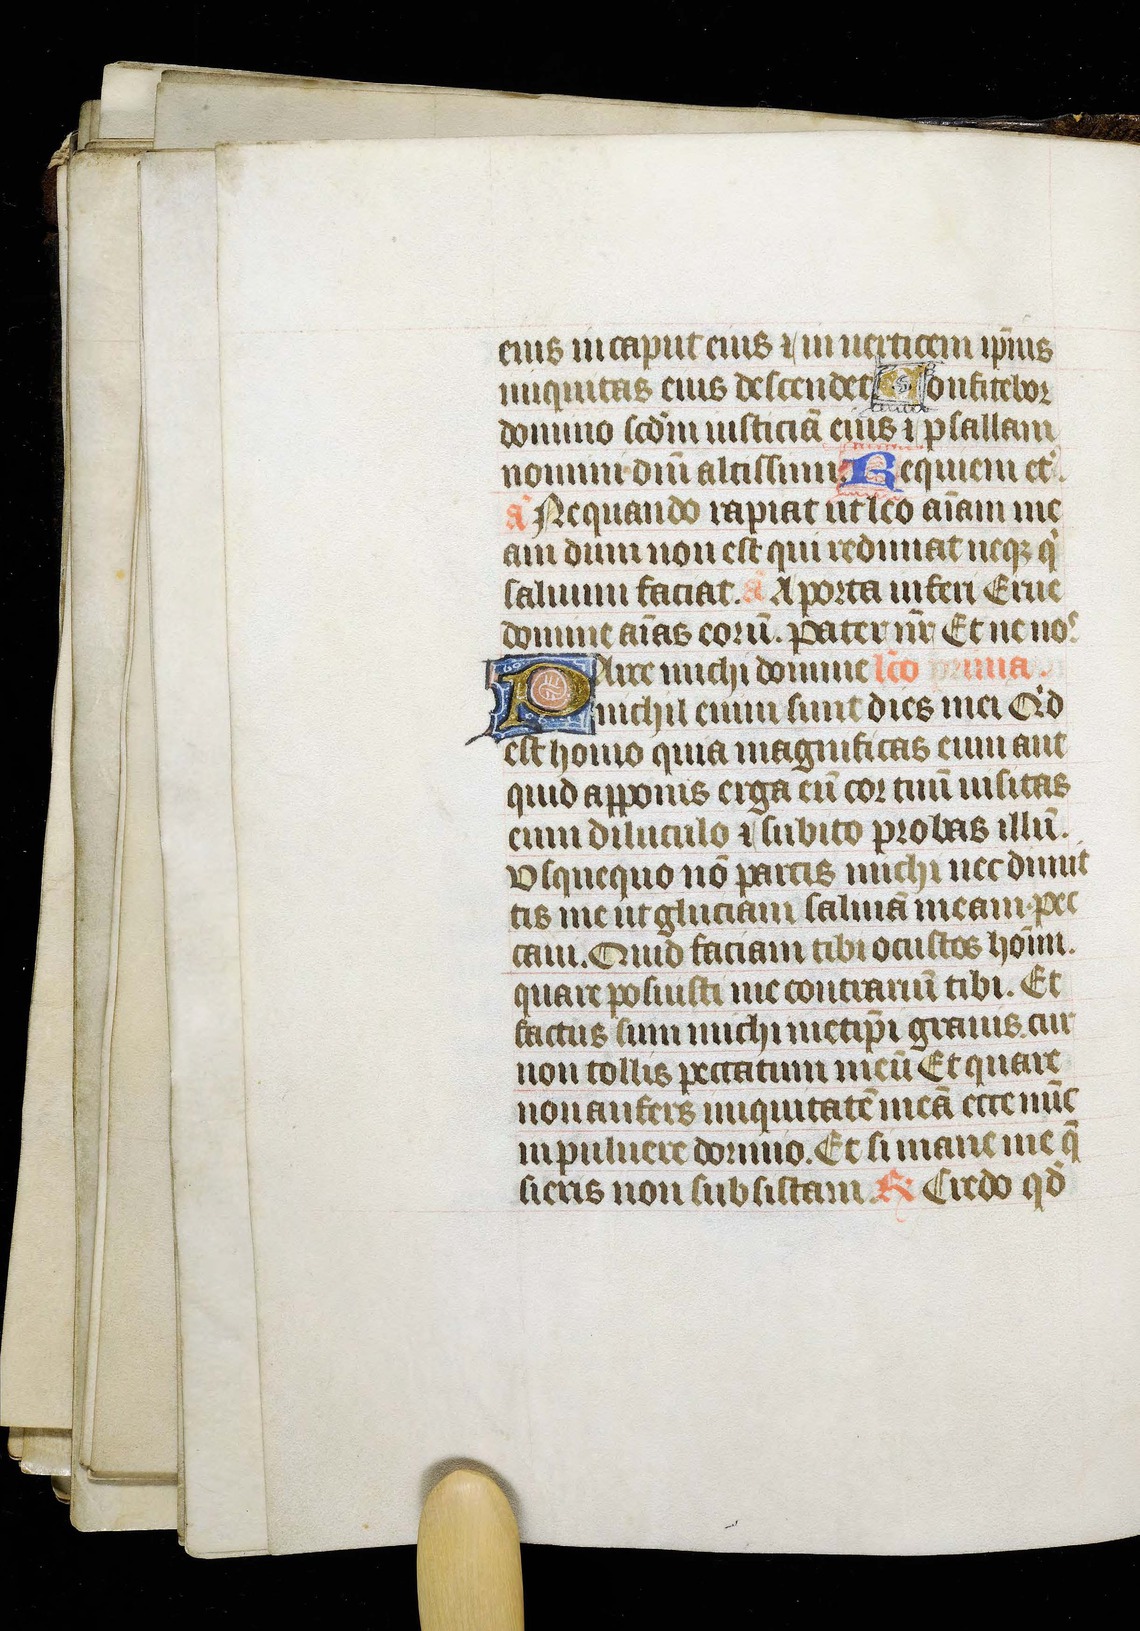 eius in caput eius ⁊ in uerticem ip̄ius
iniquitas eius descendet Confitebor
domino scdm̄ iusticiā eius ⁊ psallam
nomini dn̄i altissimi Requiem et̾.
a̾ Nequando rapiat ut leo aīam me
am dum non est qui redimat neqꝫ q̾
saluum faciat. a̾ A porta inferi Erue
domine aīas eorū. Pater nr̄ Et ne no᷒
Parce michi domine lc̄o prima.
nichil enim sunt dies mei Qi̾d
est homo quia magnificas eum aut
quid apponis erga eū cor tuū uisitas
eum diluculo ⁊ subito probas illū.
Vsquequo nō parcis michi nec dimit
tis me ut gluciam saliuā meam. pec
caui. Quid faciam tibi o custos hoīm.
quare posuisti me contrariū tibi. Et
factus sum michi metip̄i grauis. cur
non tollis peccatum meū Et quare
non aufers iniquitatē meā ecce nūc
in puluere dormio. Et si mane me q̄
sieris non subsistam. ℟ Credo qd̾